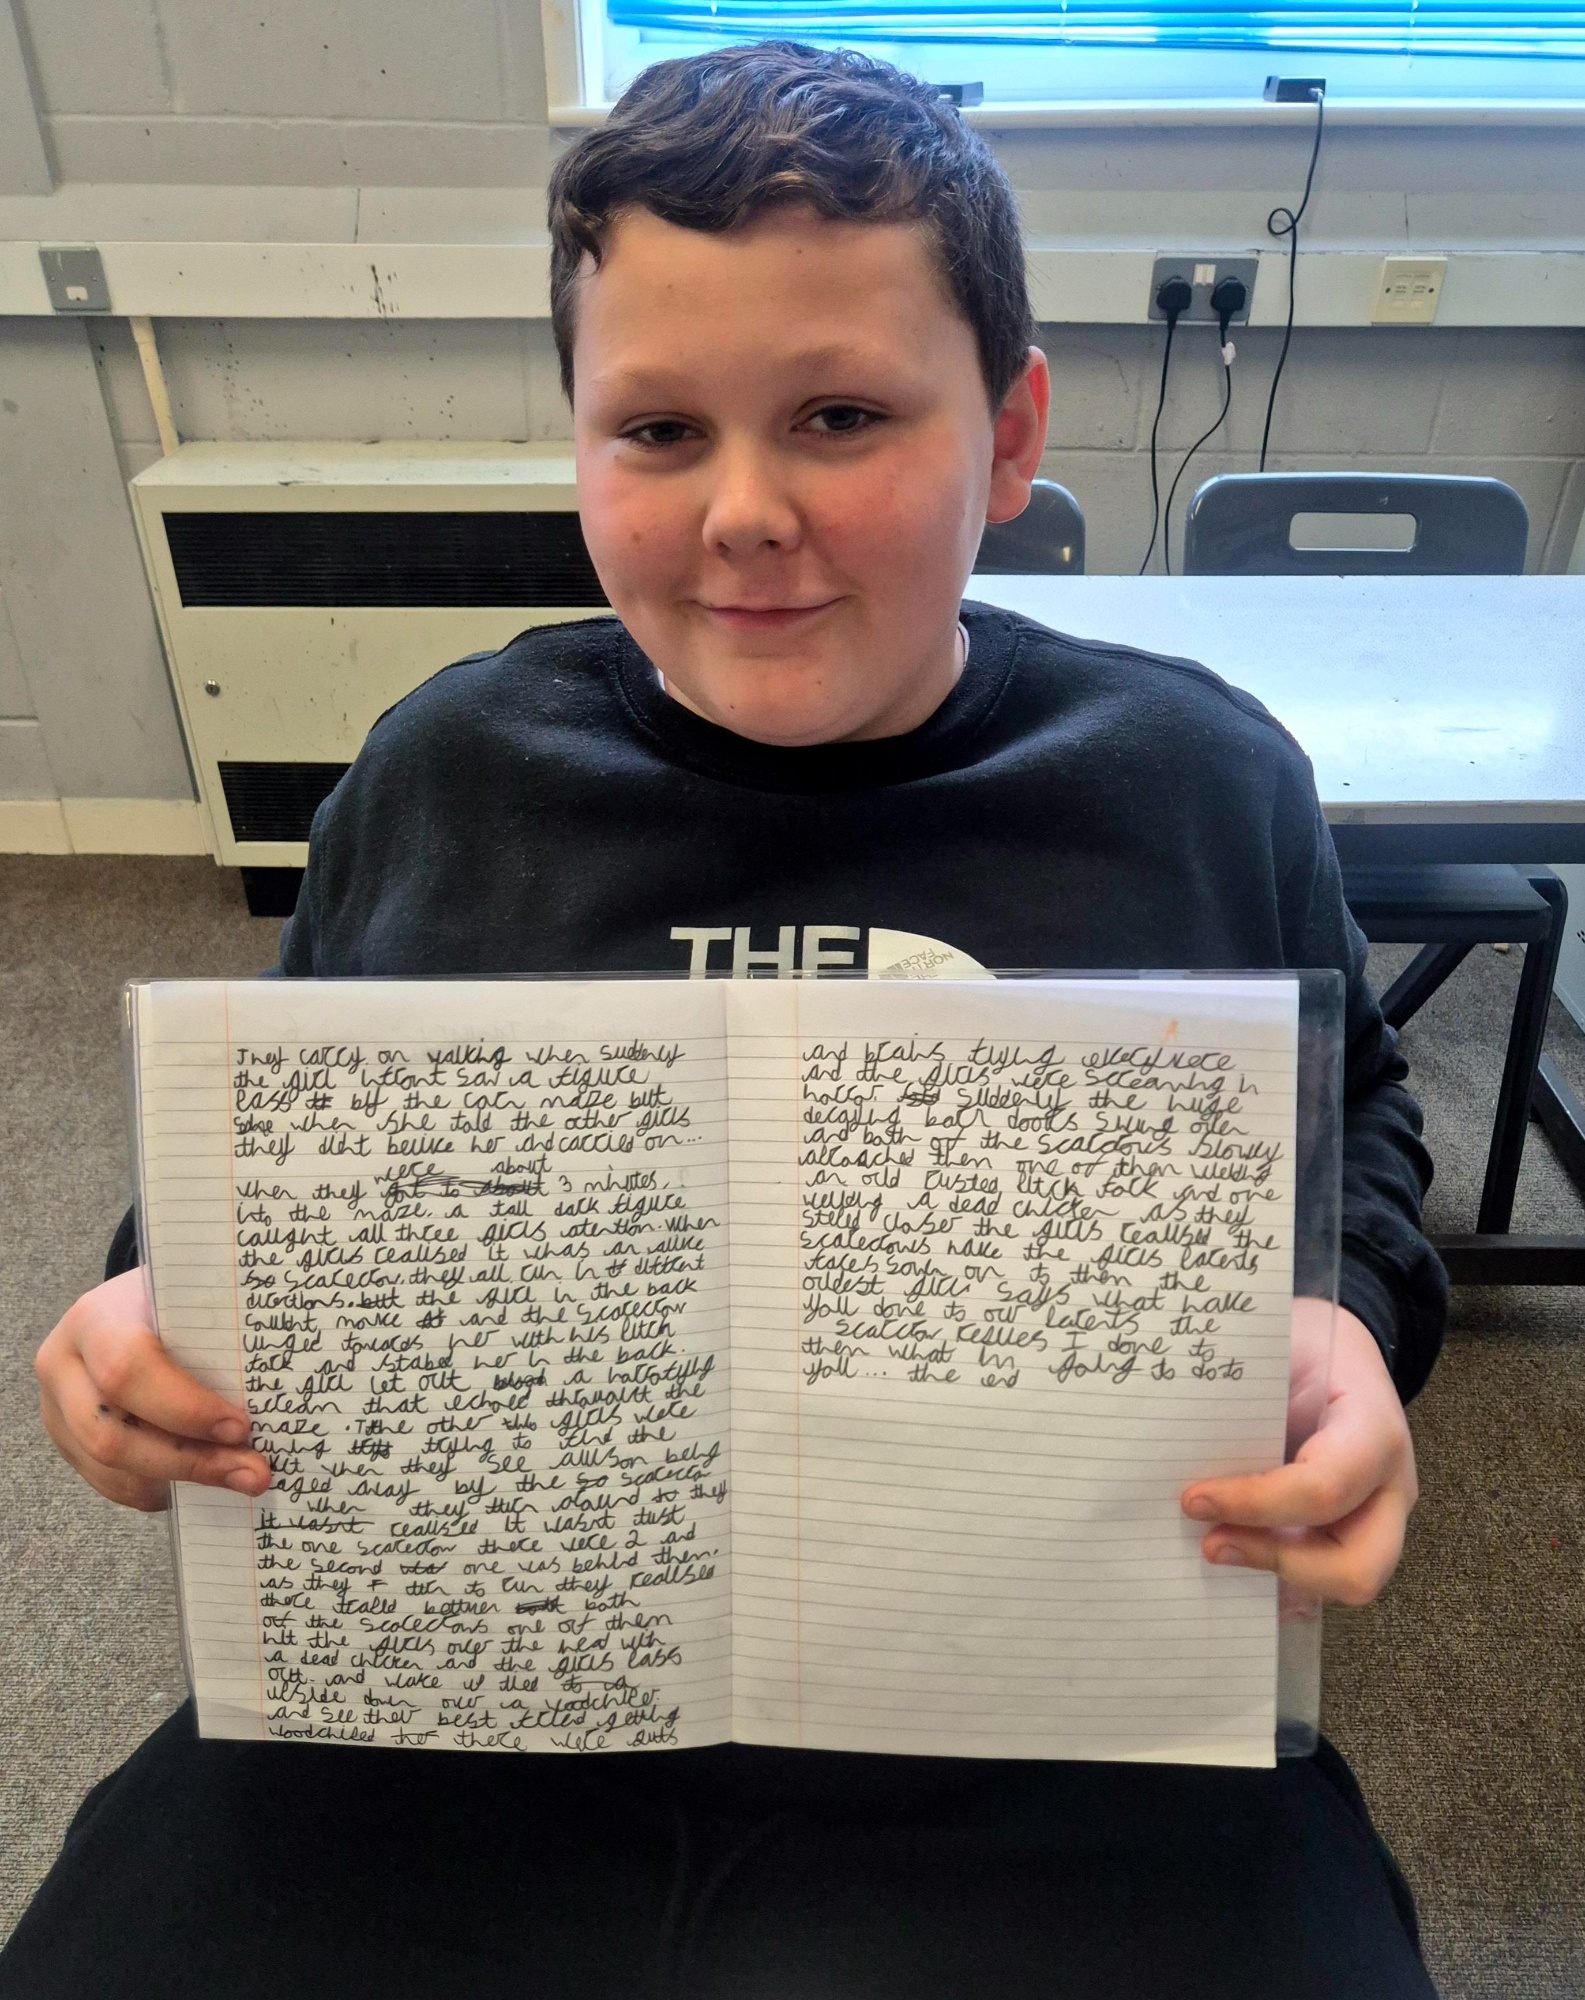 THE
NORTH
FACE
They carry on walking when suddenly
the girl infront saw a figure
pass by the corn maze but
when she told the other girls
they didnt beleive her and carried on...
were about
when they 3 minutes
into the maze. a tall dark figure
caught all three girls atention. when
the girls realised it whas an alive
scarecrow. they all run in different
directions. but the girl in the back
couldnt move and the scarecrow
lunged towards her with his pitch
fork and stabed her in the back.
the girl let out a horrofying
scream that echoed throughtt the
maze. The other girls were
runing trying to find the
exit when they see allison being
raged away by the scarecrow
when they turn around they
it wasnt realised it wasnt just
the one scarecrow there were 2 and
the second one was behind them.
as they turn to run they realised
there traped bettwen both
of the scarecrows one of them
hit the girls over the head with
a dead chicken and the girls pass
out. and wake up tied
upside down over a woodchiper
and see their best friend getting
woodchiped there were guts
and brains flying everywere
and the girls were screaming in
horror. suddenly the huge
decaying barn doors swung open
and both of the scarcrows slowly
approached them one of them weilding
an old rusted pitch fork and one
weilding a dead chicken as they
steped closer the girls realised the
scarecrows have the girls parents
faces sown on to them the
oldest girl says what have
you done to our parents the
scarcrow replies I done to
them what im going to do to
you... the end